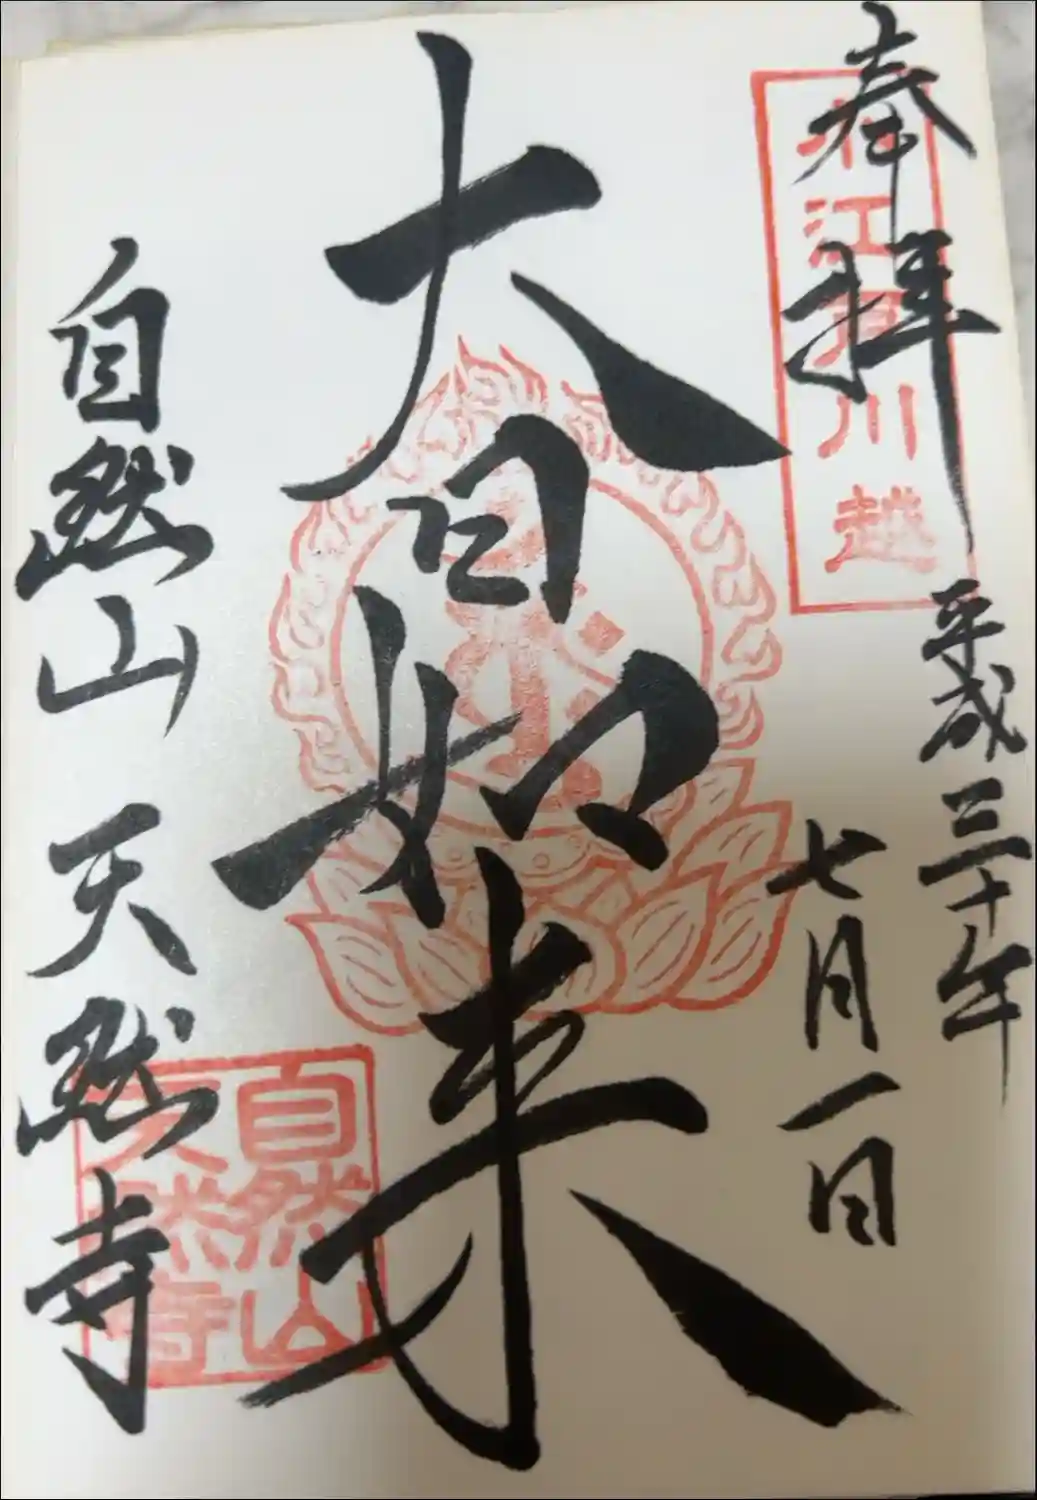 奉拝
小江戸川越
平成三十年
七月一日
大日如来
自然山 天然寺
自然山
天然寺